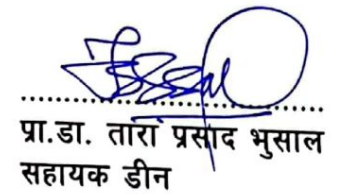 प्रा.डा. तारा प्रसाद भुसाल
सहायक डीन